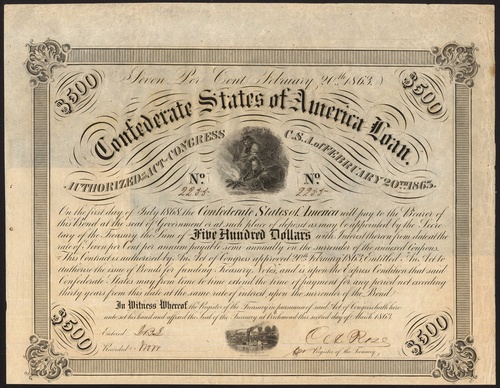 Seven Per Cent February 20th 1863.
$500 $500
Confederate States of America Loan.
AUTHORIZED BY ACT OF CONGRESS C.S.A. of FEBRUARY 20TH 1863.
No. No.
2255 2255
On the first day of July 1868 the Confederate States of America will pay to the Bearer of
this Bond at the seat of Government or at such place of deposit as may be appointed by the Secre-
tary of the Treasury the Sum of Five Hundred Dollars with Interest thereon from date at the
rate of Seven Per Cent per annum payable semi annually on the surrender of the annexed Coupons.
This Contract is authorized by An Act of Congress approved 20th February 1863 entitled "An Act to
authorize the issue of Bonds for funding Treasury Notes, and is upon the Express Condition that said
Confederate States may from time to time extend the time of payment for any period not exceeding
thirty years from this date at the same rate of interest upon the surrender of the Bond.
In Witness Whereof, the Register of the Treasury in pursuance of said Act of Congress hath here-
unto set his hand and affixed the Seal of the Treasury at Richmond this second day of March 1863
$500 $500
Entered
Recorded
Register of the Treasury